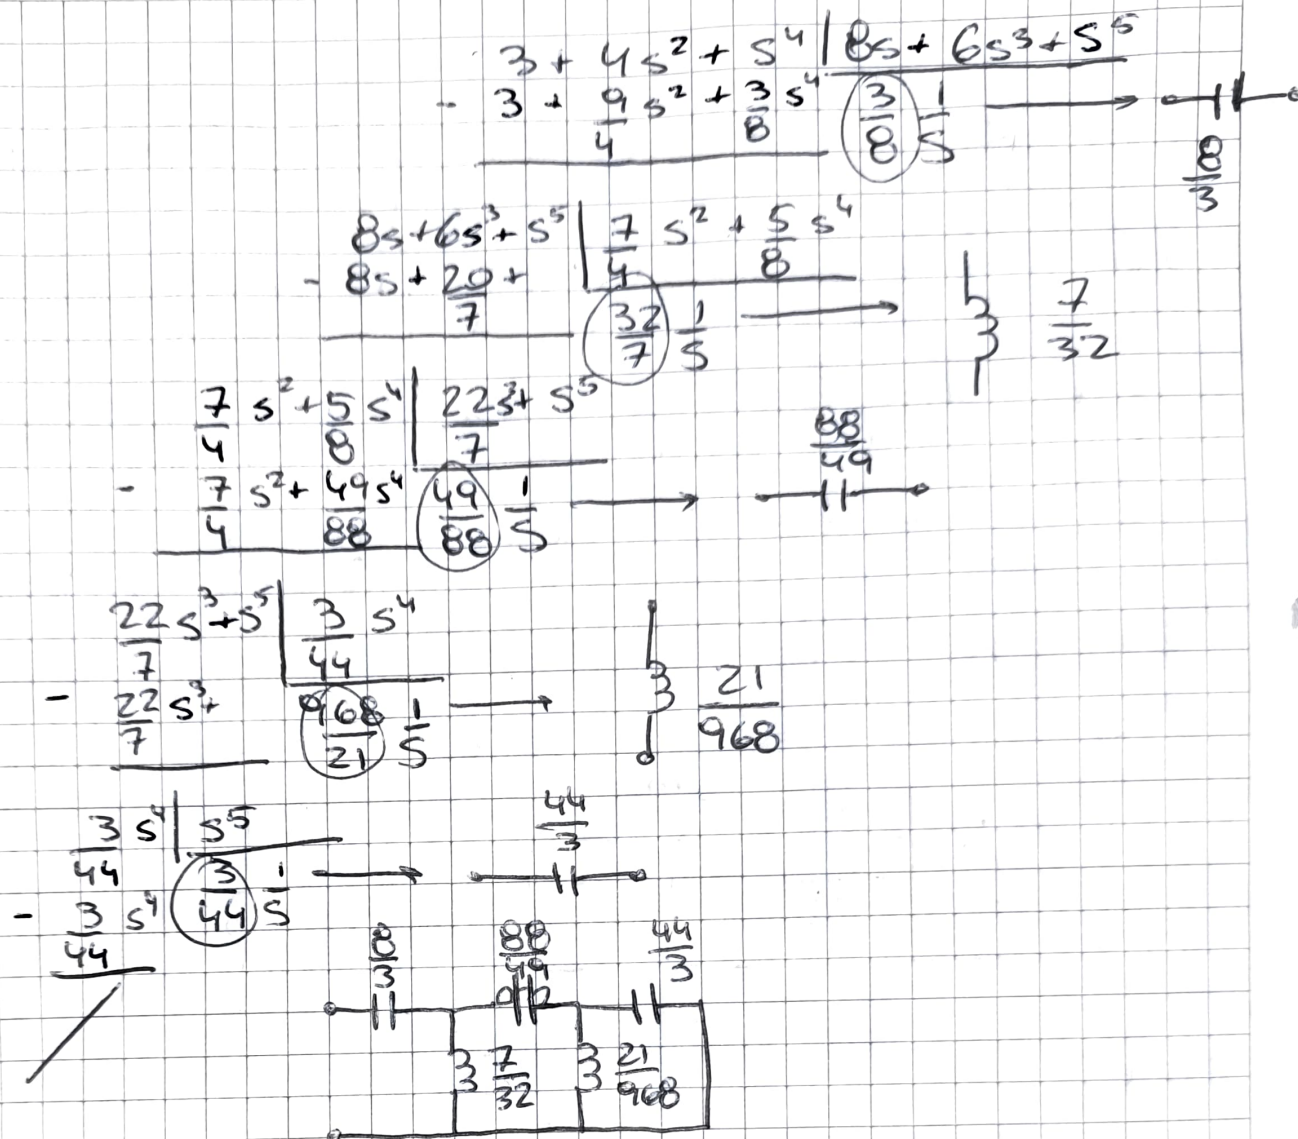 3 + 4s² + s⁴ | 8s + 6s³ + s⁵
- 3 + 9/4 s² + 3/8 s⁴ 3/8 1/s → 8/3
8s + 6s³ + s⁵ | 7/4 s² + 5/8 s⁴
- 8s + 20/7 + 32/7 1/s → 7/32
7/4 s² + 5/8 s⁴ | 22/7 s³ + s⁵
- 7/4 s² + 49/88 s⁴ 49/88 1/s → 88/49
22/7 s³ + s⁵ | 3/44 s⁴
- 22/7 s³ + 968/21 1/s → 21/968
3/44 s⁴ | s⁵
- 3/44 s⁴ 3/44 1/s → 44/3
8/3 88/49 44/3
7/32 21/968